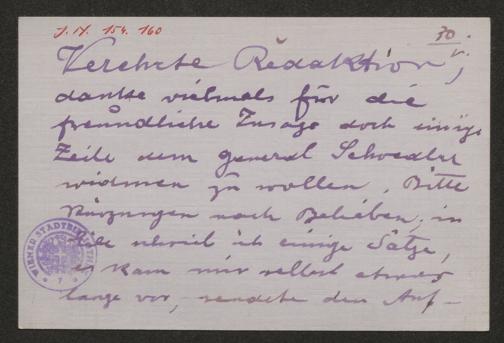 J.N. 154.160
30.
Verehrte Redaktion,
danke vielmals für die
freundliche Zusage doch einige
Zeile dem General Schoedler
widmen zu wollen. Bitte
Kürzungen nach Belieben, in
schrieb ich einige Sätze,
es kam mir selbst etwas
lange vor, sendete den Auf-
WIENER STADTBIBLIOTHEK